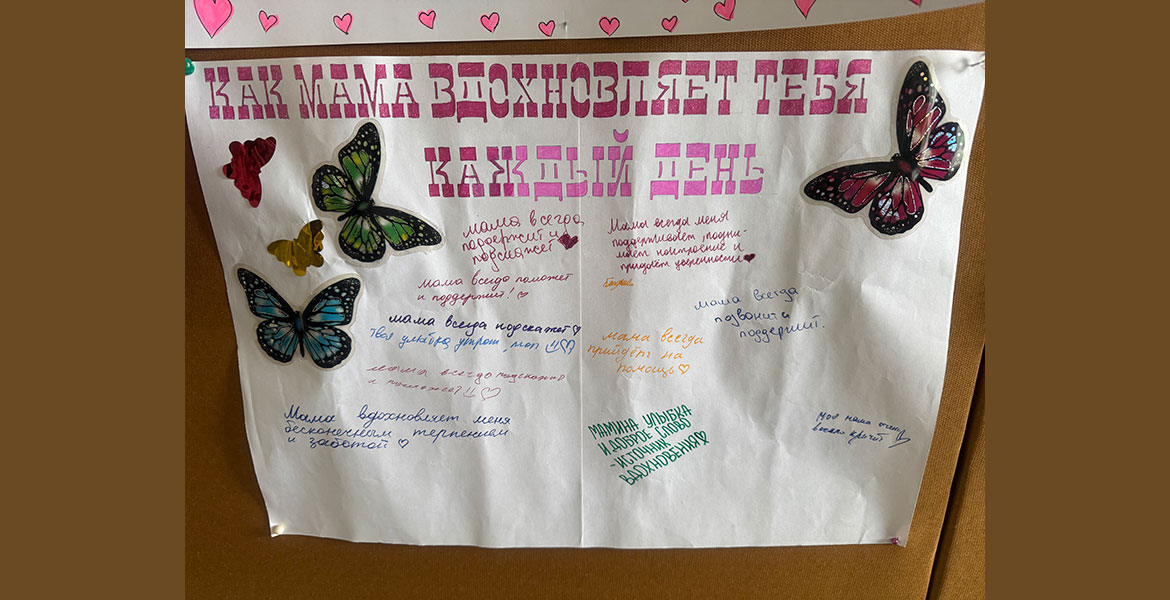 КАК МАМА ВДОХНОВЛЯЕТ ТЕБЯ
КАЖДЫЙ ДЕНЬ
мама всегда
поддержит и
подскажет
Мама всегда меня
поддерживает, подни-
мает настроение и
придаёт уверенности
мама всегда поможет
и поддержит!
мама всегда
позвонит и
поддержит.
мама всегда подскажет
Твоя улыбка утром
мама всегда
прийдёт на
помощь
мама всегда подскажет
и поможет!!
Мама вдохновляет меня
бесконечным терпением
и заботой
МАМИНА УЛЫБКА
И ДОБРОЕ СЛОВО
- ИСТОЧНИК
ВДОХНОВЕНИЯ
Моя мама очень
кричит